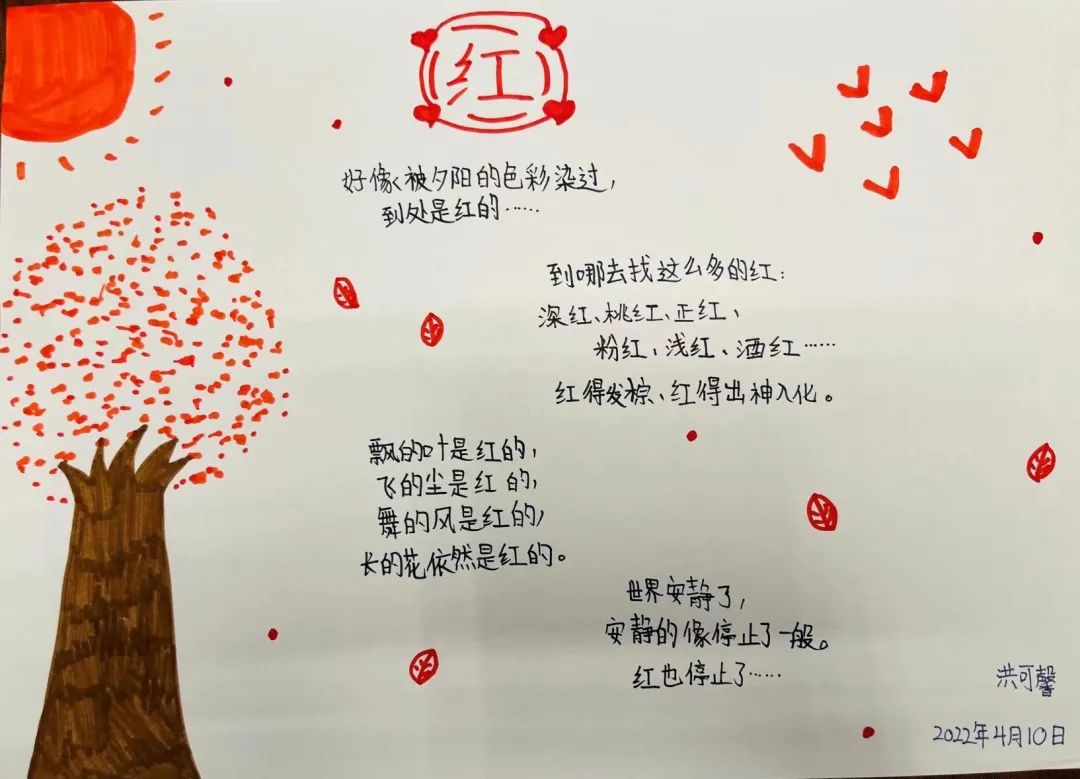 红
好像被夕阳的色彩染过，
到处是红的……
到哪去找这么多的红：
深红、桃红、正红、
粉红、浅红、酒红……
红得发棕、红得出神入化。
飘的叶是红的，
飞的尘是红的，
舞的风是红的，
长的花依然是红的。
世界安静了，
安静的像停止了一般。
红也停止了……
洪可馨
2022年4月10日